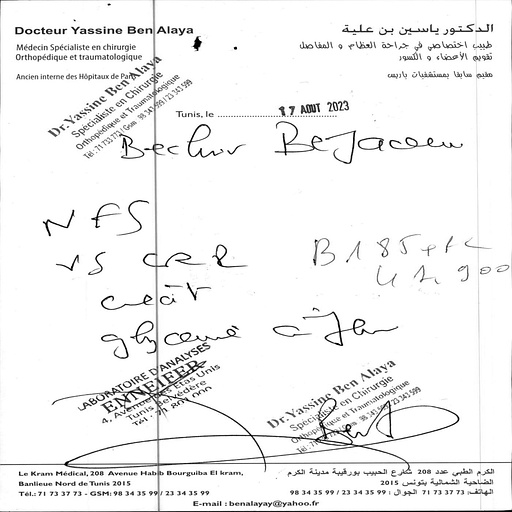 Docteur Yassine Ben Alaya
Médecin Spécialiste en chirurgie
Orthopédique et traumatologique
Ancien interne des Hôpitaux de Paris
الدكتور ياسين بن علية
طبيب اختصاصي في جراحة العظام و المفاصل
تقويم الأعضاء و الكسور
مقيم سابقا بمستشفيات باريس
Dr. Yassine Ben Alaya
Spécialiste en Chirurgie
Orthopédique et Traumatologique
Tél : 71 733 773 / Gsm : 98 343 599 / 23 343 599
Tunis, le 17 AOUT 2023
Bechir
NFS
VS CRP
créat
glycémie à jeun
B185
LABORATOIRE D'ANALYSES
ENNEIFER
4, Avenue des Etas Unis
Tunis Belvédère
Dr. Yassine Ben Alaya
Spécialiste en Chirurgie
Orthopédique et Traumatologique
98 343 599 / 23 343 599
Le Kram Médical, 208 Avenue Habib Bourguiba El kram,
Banlieue Nord de Tunis 2015
Tél.: 71 73 37 73 - GSM: 98 34 35 99 / 23 34 35 99
الكرم الطبي عدد 208 شارع الحبيب بورقيبة مدينة الكرم
الضاحية الشمالية بتونس 2015
الهاتف: 73 37 73 71 الجوال : 99 35 34 98 / 99 35 34 23
E-mail : benalayay@yahoo.fr